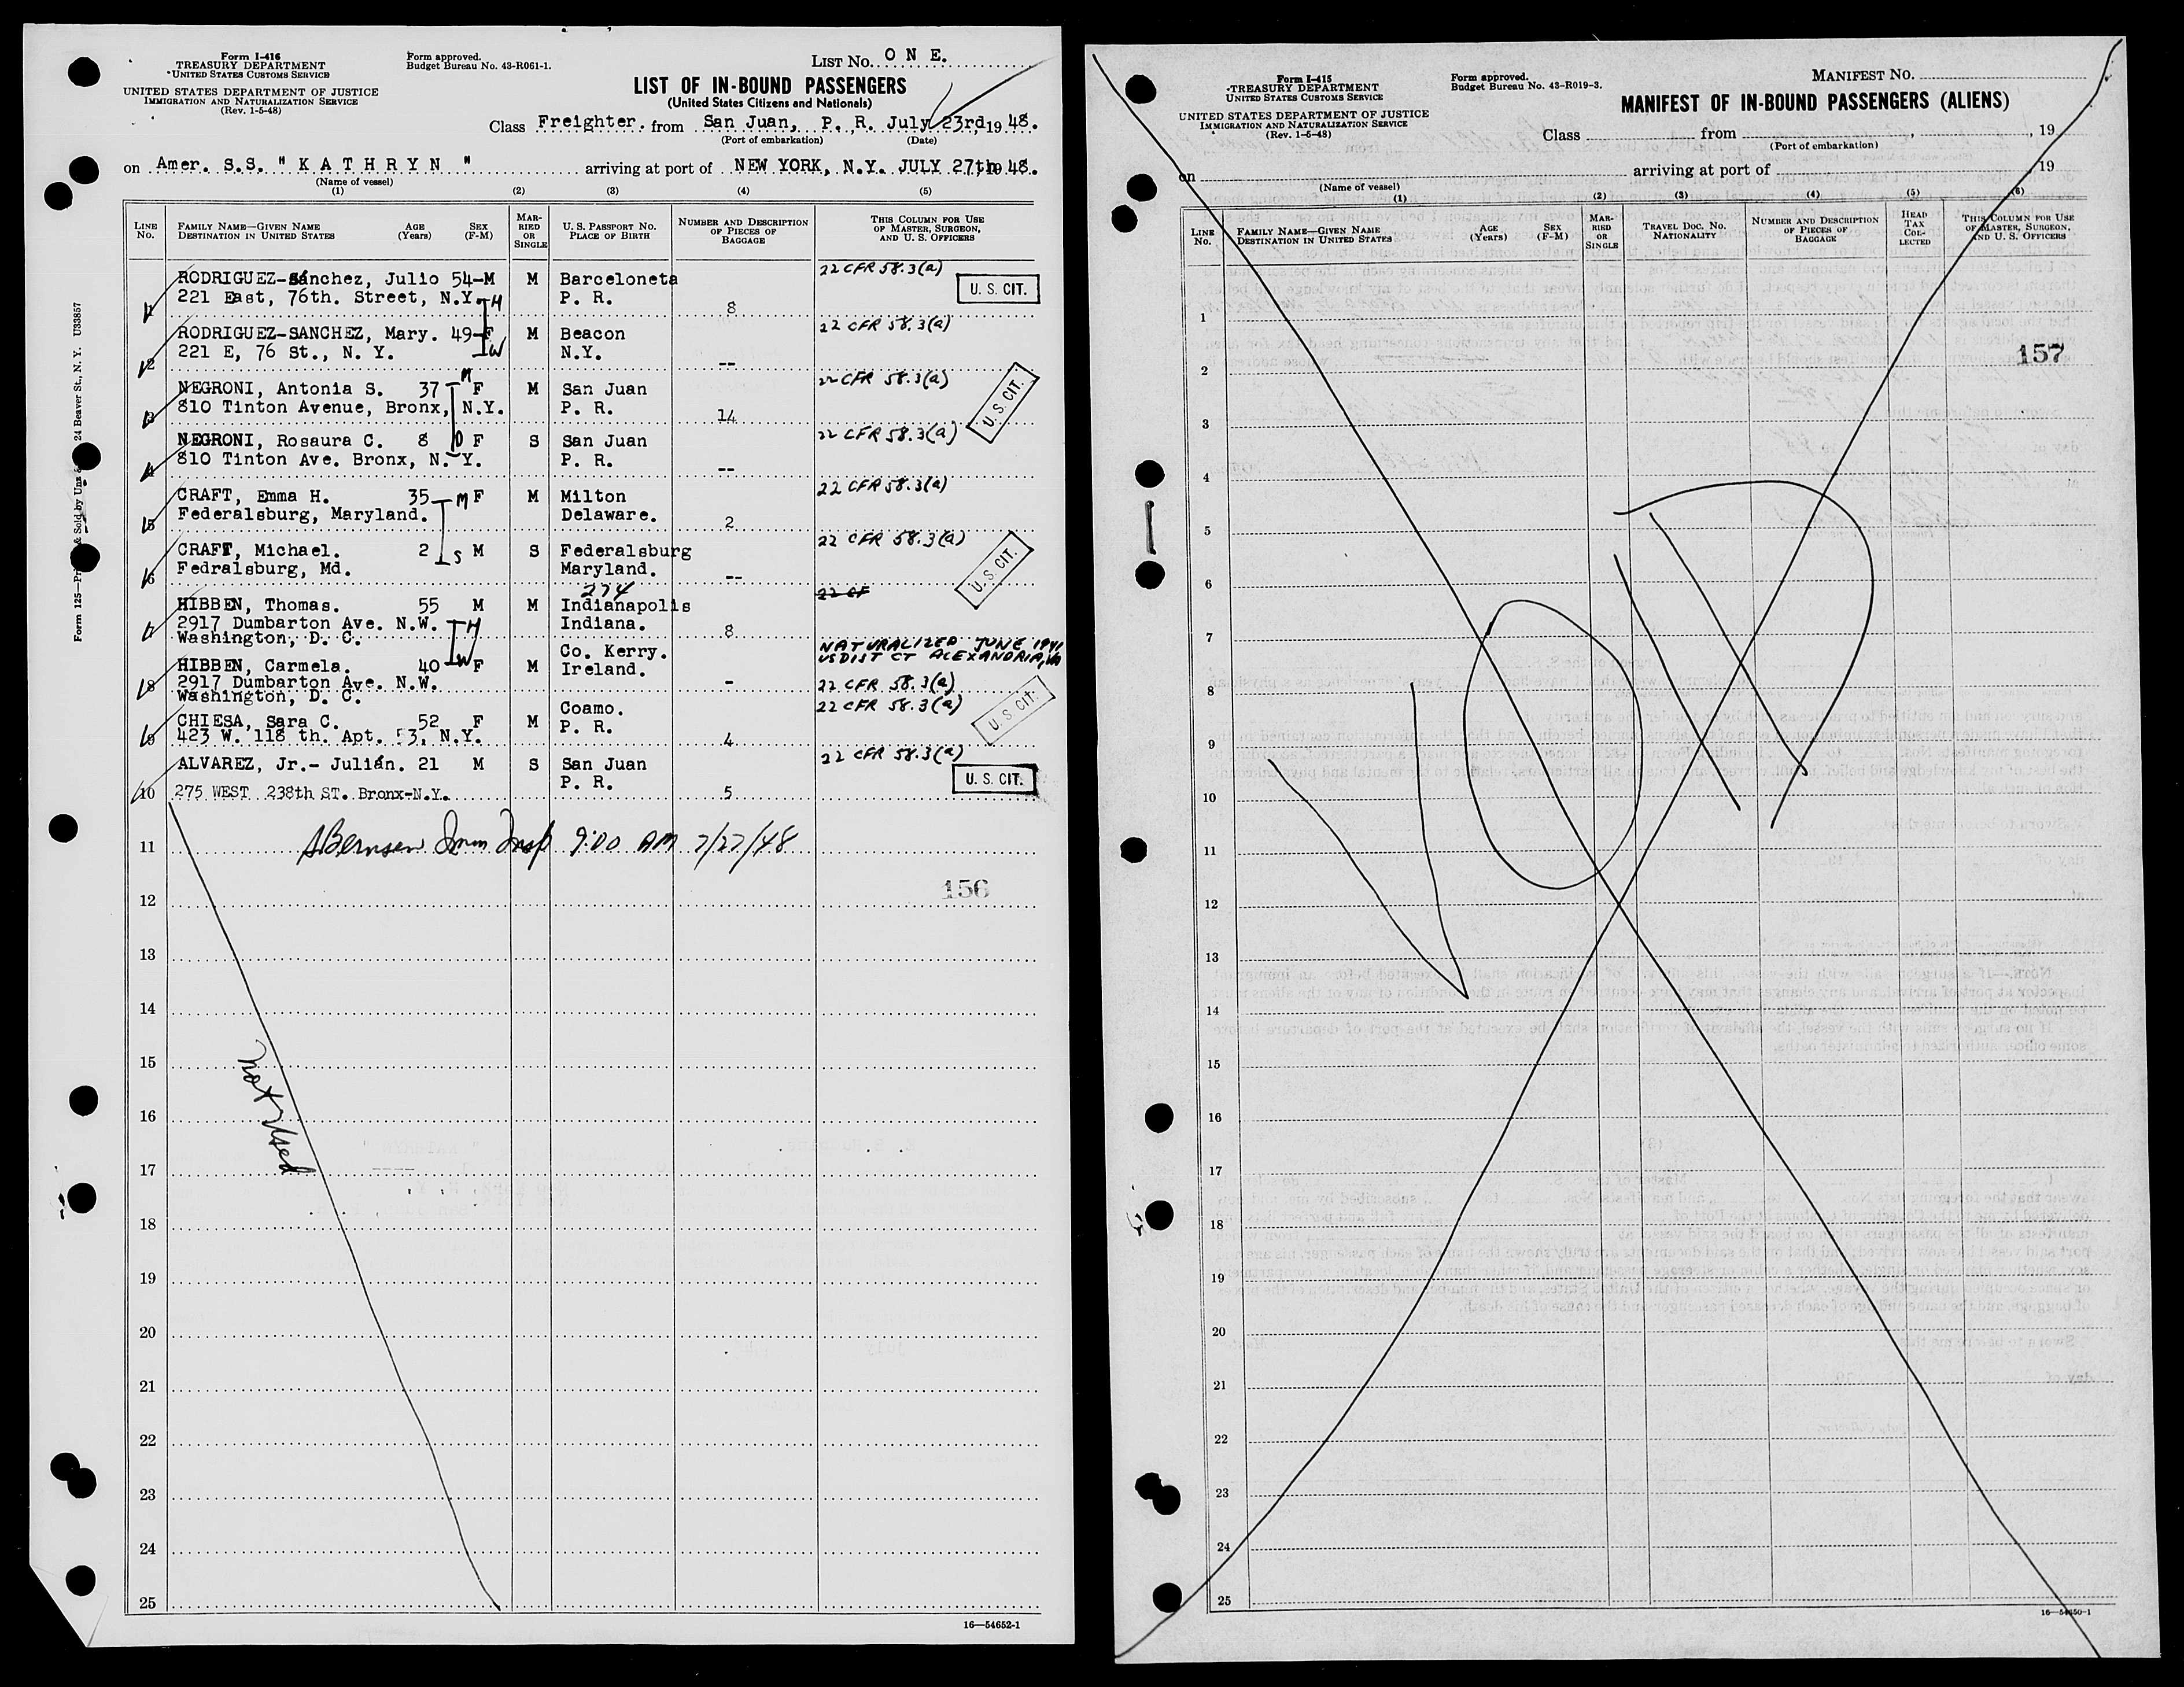 Form I-416
TREASURY DEPARTMENT
UNITED STATES CUSTOMS SERVICE
UNITED STATES DEPARTMENT OF JUSTICE
IMMIGRATION AND NATURALIZATION SERVICE
(Rev. 1-5-48)
Form approved.
Budget Bureau No. 43-R061-1.
LIST No. O N E.
LIST OF IN-BOUND PASSENGERS
(United States Citizens and Nationals)
Class Freighter. from San Juan, P. R. July 23rd, 19 48.
(Port of embarkation) (Date)
on Amer. S.S. " K A T H R Y N " arriving at port of NEW YORK, N.Y. JULY 27th 19 48.
(Name of vessel)
(1) (2) (3) (4) (5)
LINE No. FAMILY NAME—GIVEN NAME DESTINATION IN UNITED STATES AGE (Years) SEX (F-M) MARRIED OR SINGLE U. S. PASSPORT NO. PLACE OF BIRTH NUMBER AND DESCRIPTION OF PIECES OF BAGGAGE THIS COLUMN FOR USE OF MASTER, SURGEON, AND U. S. OFFICERS
RODRIGUEZ-Sánchez, Julio 54-M M Barceloneta 22 CFR 58.3(a)
1 221 East, 76th. Street, N.Y. H P. R. 8 U. S. CIT.
RODRIGUEZ-SANCHEZ, Mary. 49-F M Beacon 22 CFR 58.3(a)
2 221 E, 76 St., N. Y. W N.Y. --
NEGRONI, Antonia S. 37 M F M San Juan 22 CFR 58.3(a)
3 810 Tinton Avenue, Bronx, N.Y. P. R. 14 U. S. CIT.
NEGRONI, Rosaura C. 8 D F S San Juan 22 CFR 58.3(a)
4 810 Tinton Ave. Bronx, N. Y. P. R. --
CRAFT, Emma H. 35 M F M Milton 22 CFR 58.3(a)
5 Federalsburg, Maryland. Delaware. 2
CRAFT, Michael. 2 S M S Federalsburg 22 CFR 58.3(a)
6 Fedralsburg, Md. Maryland. -- U. S. CIT.
274 22 CF
HIBBEN, Thomas. 55 M M Indianapolis
7 2917 Dumbarton Ave. N.W. H Indiana. 8
Washington, D. C.
NATURALIZED JUNE 1941
US DIST CT ALEXANDRIA, VA
HIBBEN, Carmela. 40 W F M Co. Kerry. Ireland.
8 2917 Dumbarton Ave. N.W. - 22 CFR 58.3(a)
Washington, D. C.
CHIESA, Sara C. 52 F M Coamo. 22 CFR 58.3(a)
9 423 W. 118 th. Apt. 53, N.Y. P. R. 4 U. S. CIT.
ALVAREZ, Jr.- Julián. 21 M S San Juan 22 CFR 58.3(a)
10 275 WEST 238th ST. Bronx-N.Y. P. R. 5 U. S. CIT.
11 Imm Insp 9:00 AM 7/27/48
156
12
13
14
15
not used
16
17
18
19
20
21
22
23
24
25
16—54652-1
24 Beaver St., N. Y. U33857
Form I-415
TREASURY DEPARTMENT
UNITED STATES CUSTOMS SERVICE
UNITED STATES DEPARTMENT OF JUSTICE
IMMIGRATION AND NATURALIZATION SERVICE
(Rev. 1-5-48)
Form approved.
Budget Bureau No. 43-R019-3.
MANIFEST No.
MANIFEST OF IN-BOUND PASSENGERS (ALIENS)
Class from , 19
(Port of embarkation)
on arriving at port of , 19
(Name of vessel)
(1) (2) (3) (4) (5) (6)
LINE No. FAMILY NAME—GIVEN NAME DESTINATION IN UNITED STATES AGE (Years) SEX (F-M) MARRIED OR SINGLE TRAVEL DOC. NO. NATIONALITY NUMBER AND DESCRIPTION OF PIECES OF BAGGAGE HEAD TAX COLLECTED THIS COLUMN FOR USE OF MASTER, SURGEON, AND U. S. OFFICERS
1
157
2
3
4
5
6
7
8
9
10
11
12
13
14
15
16
17
18
19
20
21
22
23
24
25
16—54650-1